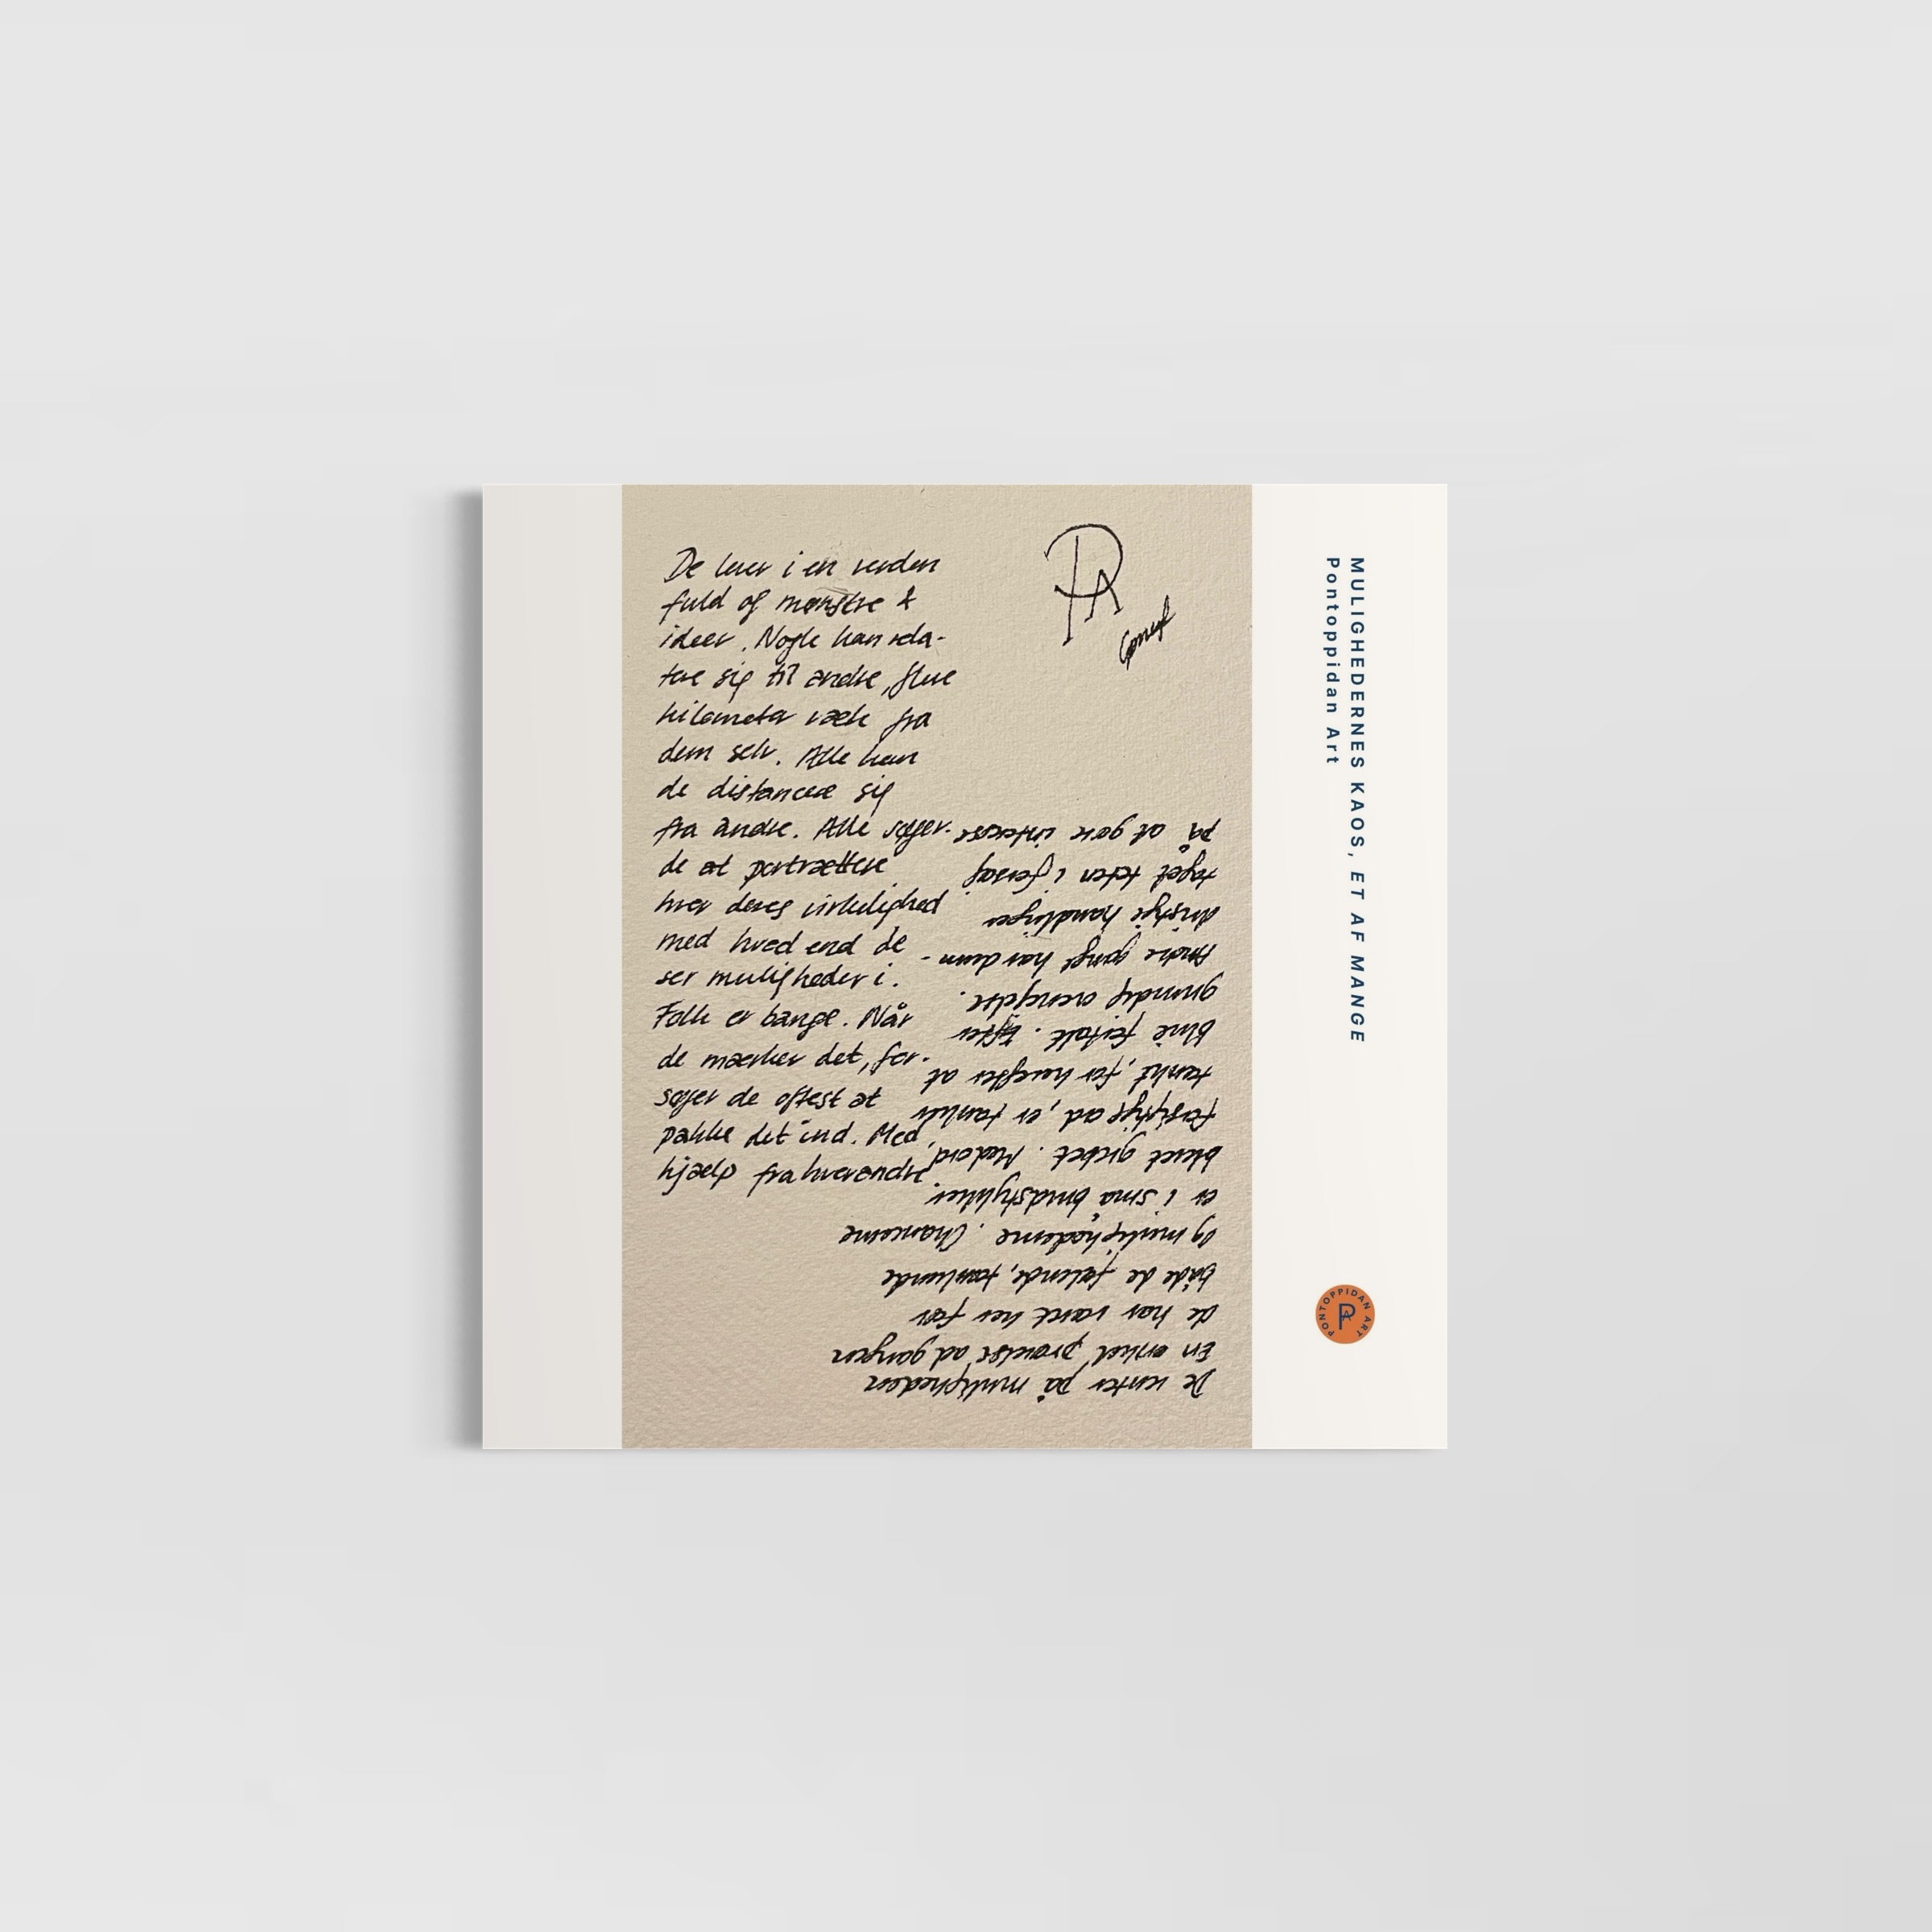 De lever i en verden
fuld af mønstre &
ideer. Nogle kan rela-
tere sig til andre, flere
kilometer væk fra
dem selv. Alle kan
de distancere sig
fra andre. Alle søger
de at portrættere
hver deres virkelighed
med hvad end de
ser muligheder i.
Folk er bange. Når
de mærker det, for-
søger de oftest at
pakke det ind. Med
hjælp fra hverandre.
De venter på muligheden
En enkel prøvelse ad gangen
de har været her før
både de følende, famlende
og mulighederne. Chancerne
er i små brudstykker
blevet grebet. Med ord,
forsigtigt ad, er tanker
tænkt, for herefter at
blive fortalt. Efter
grundig overvejelse.
Andre gange har dum-
dristige handlinger
taget teten i forsøg
på at gøre interesse
PA
MULIGHEDERNES KAOS, ET AF MANGE
Pontoppidan Art
PONTOPPIDAN ART
PA